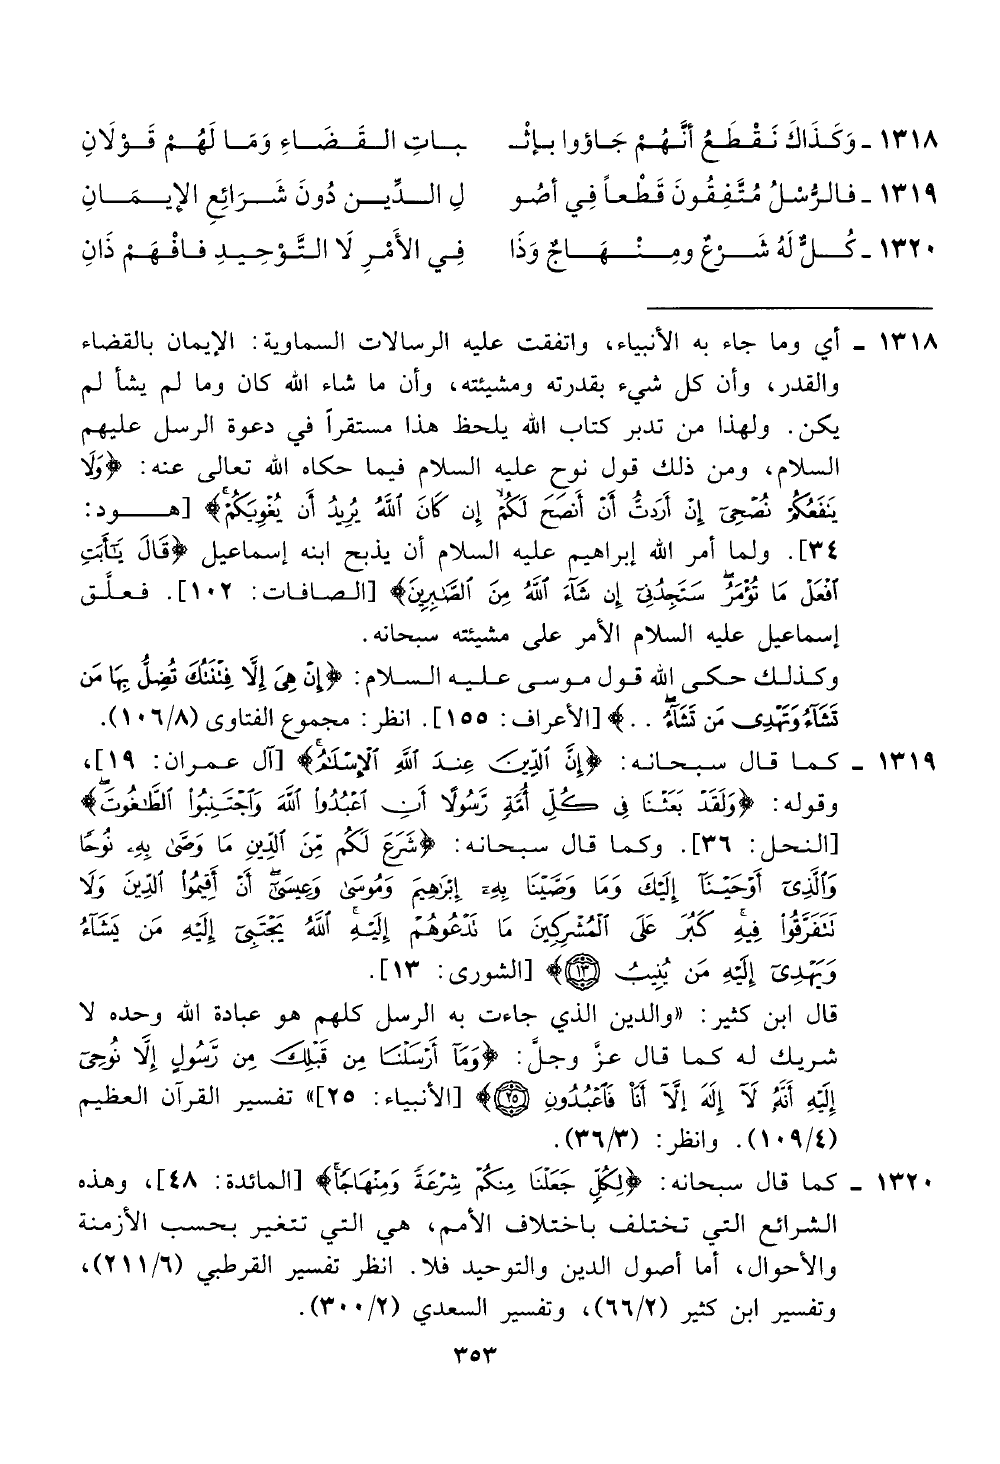 ١٣١٨ ـ وَكَذَاكَ نَقْطَعُ أَنَّهُمْ جَاؤوا بِإثْـ بـاتِ القَضَاءِ وَمَا لَهُمْ قَوْلَانِ
١٣١٩ ـ فالرُّسْلُ مُتَّفِقُونَ قَطْعاً فِي أصُو لِ الدِّينِ دُونَ شَرَائِعِ الإيمَانِ
١٣٢٠ ـ كُلٌّ لَهُ شَرْعٌ ومِنْهَاجٌ وَذَا فِي الأَمْرِ لَا التَّوْحِيدِ فافْهَمْ ذَانِ
١٣١٨ ـ أي وما جاء به الأنبياء، واتفقت عليه الرسالات السماوية: الإيمان بالقضاء
والقدر، وأن كل شيء بقدرته ومشيئته، وأن ما شاء الله كان وما لم يشأ لم
يكن. ولهذا من تدبر كتاب الله يلحظ هذا مستقراً في دعوة الرسل عليهم
السلام، ومن ذلك قول نوح عليه السلام فيما حكاه الله تعالى عنه: ﴿وَلَا
يَنفَعُكُمْ نُصْحِىٓ إِنْ أَرَدتُّ أَنْ أَنصَحَ لَكُمْ إِن كَانَ ٱللَّهُ يُرِيدُ أَن يُغْوِيَكُمْ﴾ [هود:
٣٤]. ولما أمر الله إبراهيم عليه السلام أن يذبح ابنه إسماعيل ﴿قَالَ يَٰٓأَبَتِ
ٱفْعَلْ مَا تُؤْمَرُ سَتَجِدُنِىٓ إِن شَآءَ ٱللَّهُ مِنَ ٱلصَّٰبِرِينَ﴾ [الصافات: ١٠٢]. فعلَّق
إسماعيل عليه السلام الأمر على مشيئته سبحانه.
وكذلك حكى الله قول موسى عليه السلام: ﴿إِنْ هِىَ إِلَّا فِتْنَتُكَ تُضِلُّ بِهَا مَن
تَشَآءُ وَتَهْدِى مَن تَشَآءُ ..﴾ [الأعراف: ١٥٥]. انظر: مجموع الفتاوى (١٠٦/٨).
١٣١٩ ـ كما قال سبحانه: ﴿إِنَّ ٱلدِّينَ عِندَ ٱللَّهِ ٱلْإِسْلَٰمُ﴾ [آل عمران: ١٩]،
وقوله: ﴿وَلَقَدْ بَعَثْنَا فِى كُلِّ أُمَّةٍ رَّسُولًا أَنِ ٱعْبُدُوا۟ ٱللَّهَ وَٱجْتَنِبُوا۟ ٱلطَّٰغُوتَ﴾
[النحل: ٣٦]. وكما قال سبحانه: ﴿شَرَعَ لَكُم مِّنَ ٱلدِّينِ مَا وَصَّىٰ بِهِۦ نُوحًا
وَٱلَّذِىٓ أَوْحَيْنَآ إِلَيْكَ وَمَا وَصَّيْنَا بِهِۦٓ إِبْرَٰهِيمَ وَمُوسَىٰ وَعِيسَىٰٓ أَنْ أَقِيمُوا۟ ٱلدِّينَ وَلَا
تَتَفَرَّقُوا۟ فِيهِ كَبُرَ عَلَى ٱلْمُشْرِكِينَ مَا تَدْعُوهُمْ إِلَيْهِ ٱللَّهُ يَجْتَبِىٓ إِلَيْهِ مَن يَشَآءُ
وَيَهْدِىٓ إِلَيْهِ مَن يُنِيبُ ١٣﴾ [الشورى: ١٣].
قال ابن كثير: «والدين الذي جاءت به الرسل كلهم هو عبادة الله وحده لا
شريك له كما قال عزَّ وجلَّ: ﴿وَمَآ أَرْسَلْنَا مِن قَبْلِكَ مِن رَّسُولٍ إِلَّا نُوحِىٓ
إِلَيْهِ أَنَّهُۥ لَآ إِلَٰهَ إِلَّآ أَنَا۠ فَٱعْبُدُونِ ٢٥﴾ [الأنبياء: ٢٥]» تفسير القرآن العظيم
(١٠٩/٤). وانظر: (٣٦/٣).
١٣٢٠ ـ كما قال سبحانه: ﴿لِكُلٍّ جَعَلْنَا مِنكُمْ شِرْعَةً وَمِنْهَاجًا﴾ [المائدة: ٤٨]، وهذه
الشرائع التي تختلف باختلاف الأمم، هي التي تتغير بحسب الأزمنة
والأحوال، أما أصول الدين والتوحيد فلا. انظر تفسير القرطبي (٢١١/٦)،
وتفسير ابن كثير (٦٦/٢)، وتفسير السعدي (٣٠٠/٢).
٣٥٣